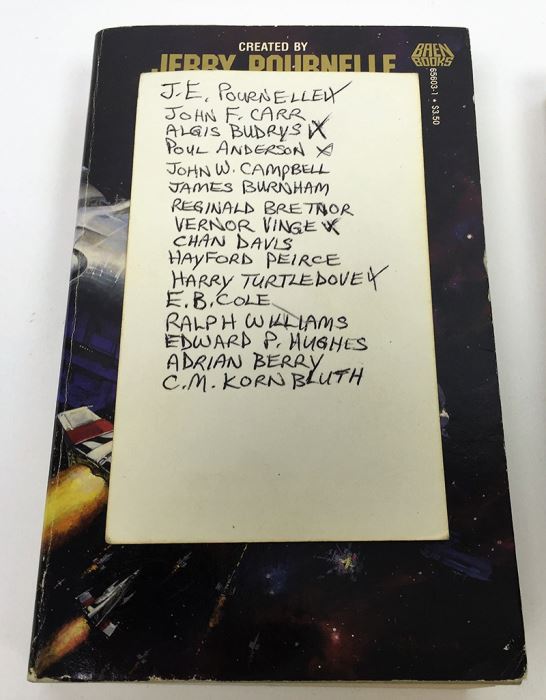 CREATED BY
JERRY POURNELLE
BAEN BOOKS
65603-1 • $3.50
J.E. POURNELLE X
JOHN F. CARR
ALGIS BUDRYS X
POUL ANDERSON X
JOHN W. CAMPBELL
JAMES BURNHAM
REGINALD BRETNOR
VERNOR VINGE X
CHAN DAVIS
HAYFORD PEIRCE
HARRY TURTLEDOVE X
E.B. COLE
RALPH WILLIAMS
EDWARD P. HUGHES
ADRIAN BERRY
C.M. KORNBLUTH